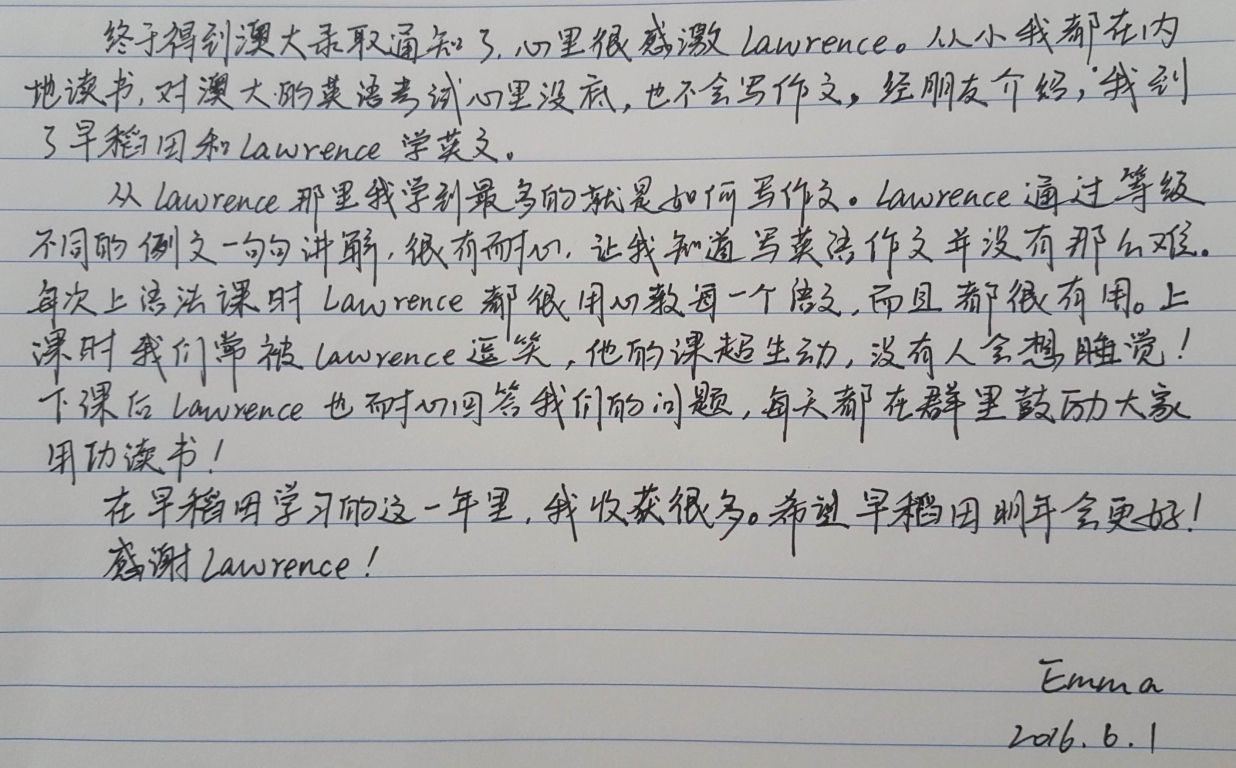 终于得到澳大录取通知了，心里很感激Lawrence。从小我都在内
地读书，对澳大的英语考试心里没底，也不会写作文。经朋友介绍，我到
了早稻田和Lawrence学英文。
从Lawrence那里我学到最多的就是如何写作文。Lawrence通过等级
不同的例文一句句讲解，很有耐心，让我知道写英语作文并没有那么难。
每次上语法课时Lawrence都很用心教每一个语文，而且都很有用。上
课时我们常被Lawrence逗笑，他的课超生动，没有人会想睡觉！
下课后Lawrence也耐心回答我们的问题，每天都在群里鼓励大家
用功读书！
在早稻田学习的这一年里，我收获很多。希望早稻田明年会更好！
感谢Lawrence！
Emma
2016.6.1